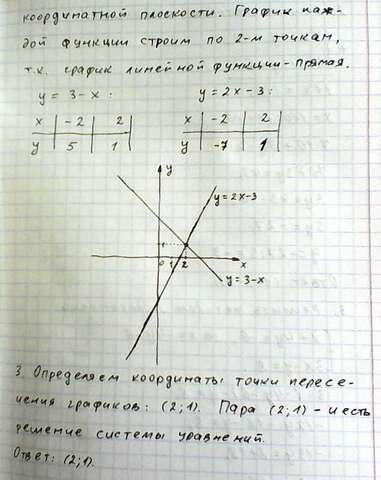 координатной плоскости. График каж-
дой функции строим по 2-м точкам,
т.к. график линейной функции - прямая.
y = 3-x :    y = 2x-3 :
x | -2 | 2    x | -2 | 2
y | 5 | 1    y | -7 | 1
y
y=2x-3
1
0 1 2 x
y=3-x
3. Определяем координаты точки пересе-
чения графиков: (2;1). Пара (2;1) - и есть
решение системы уравнений.
Ответ: (2;1).